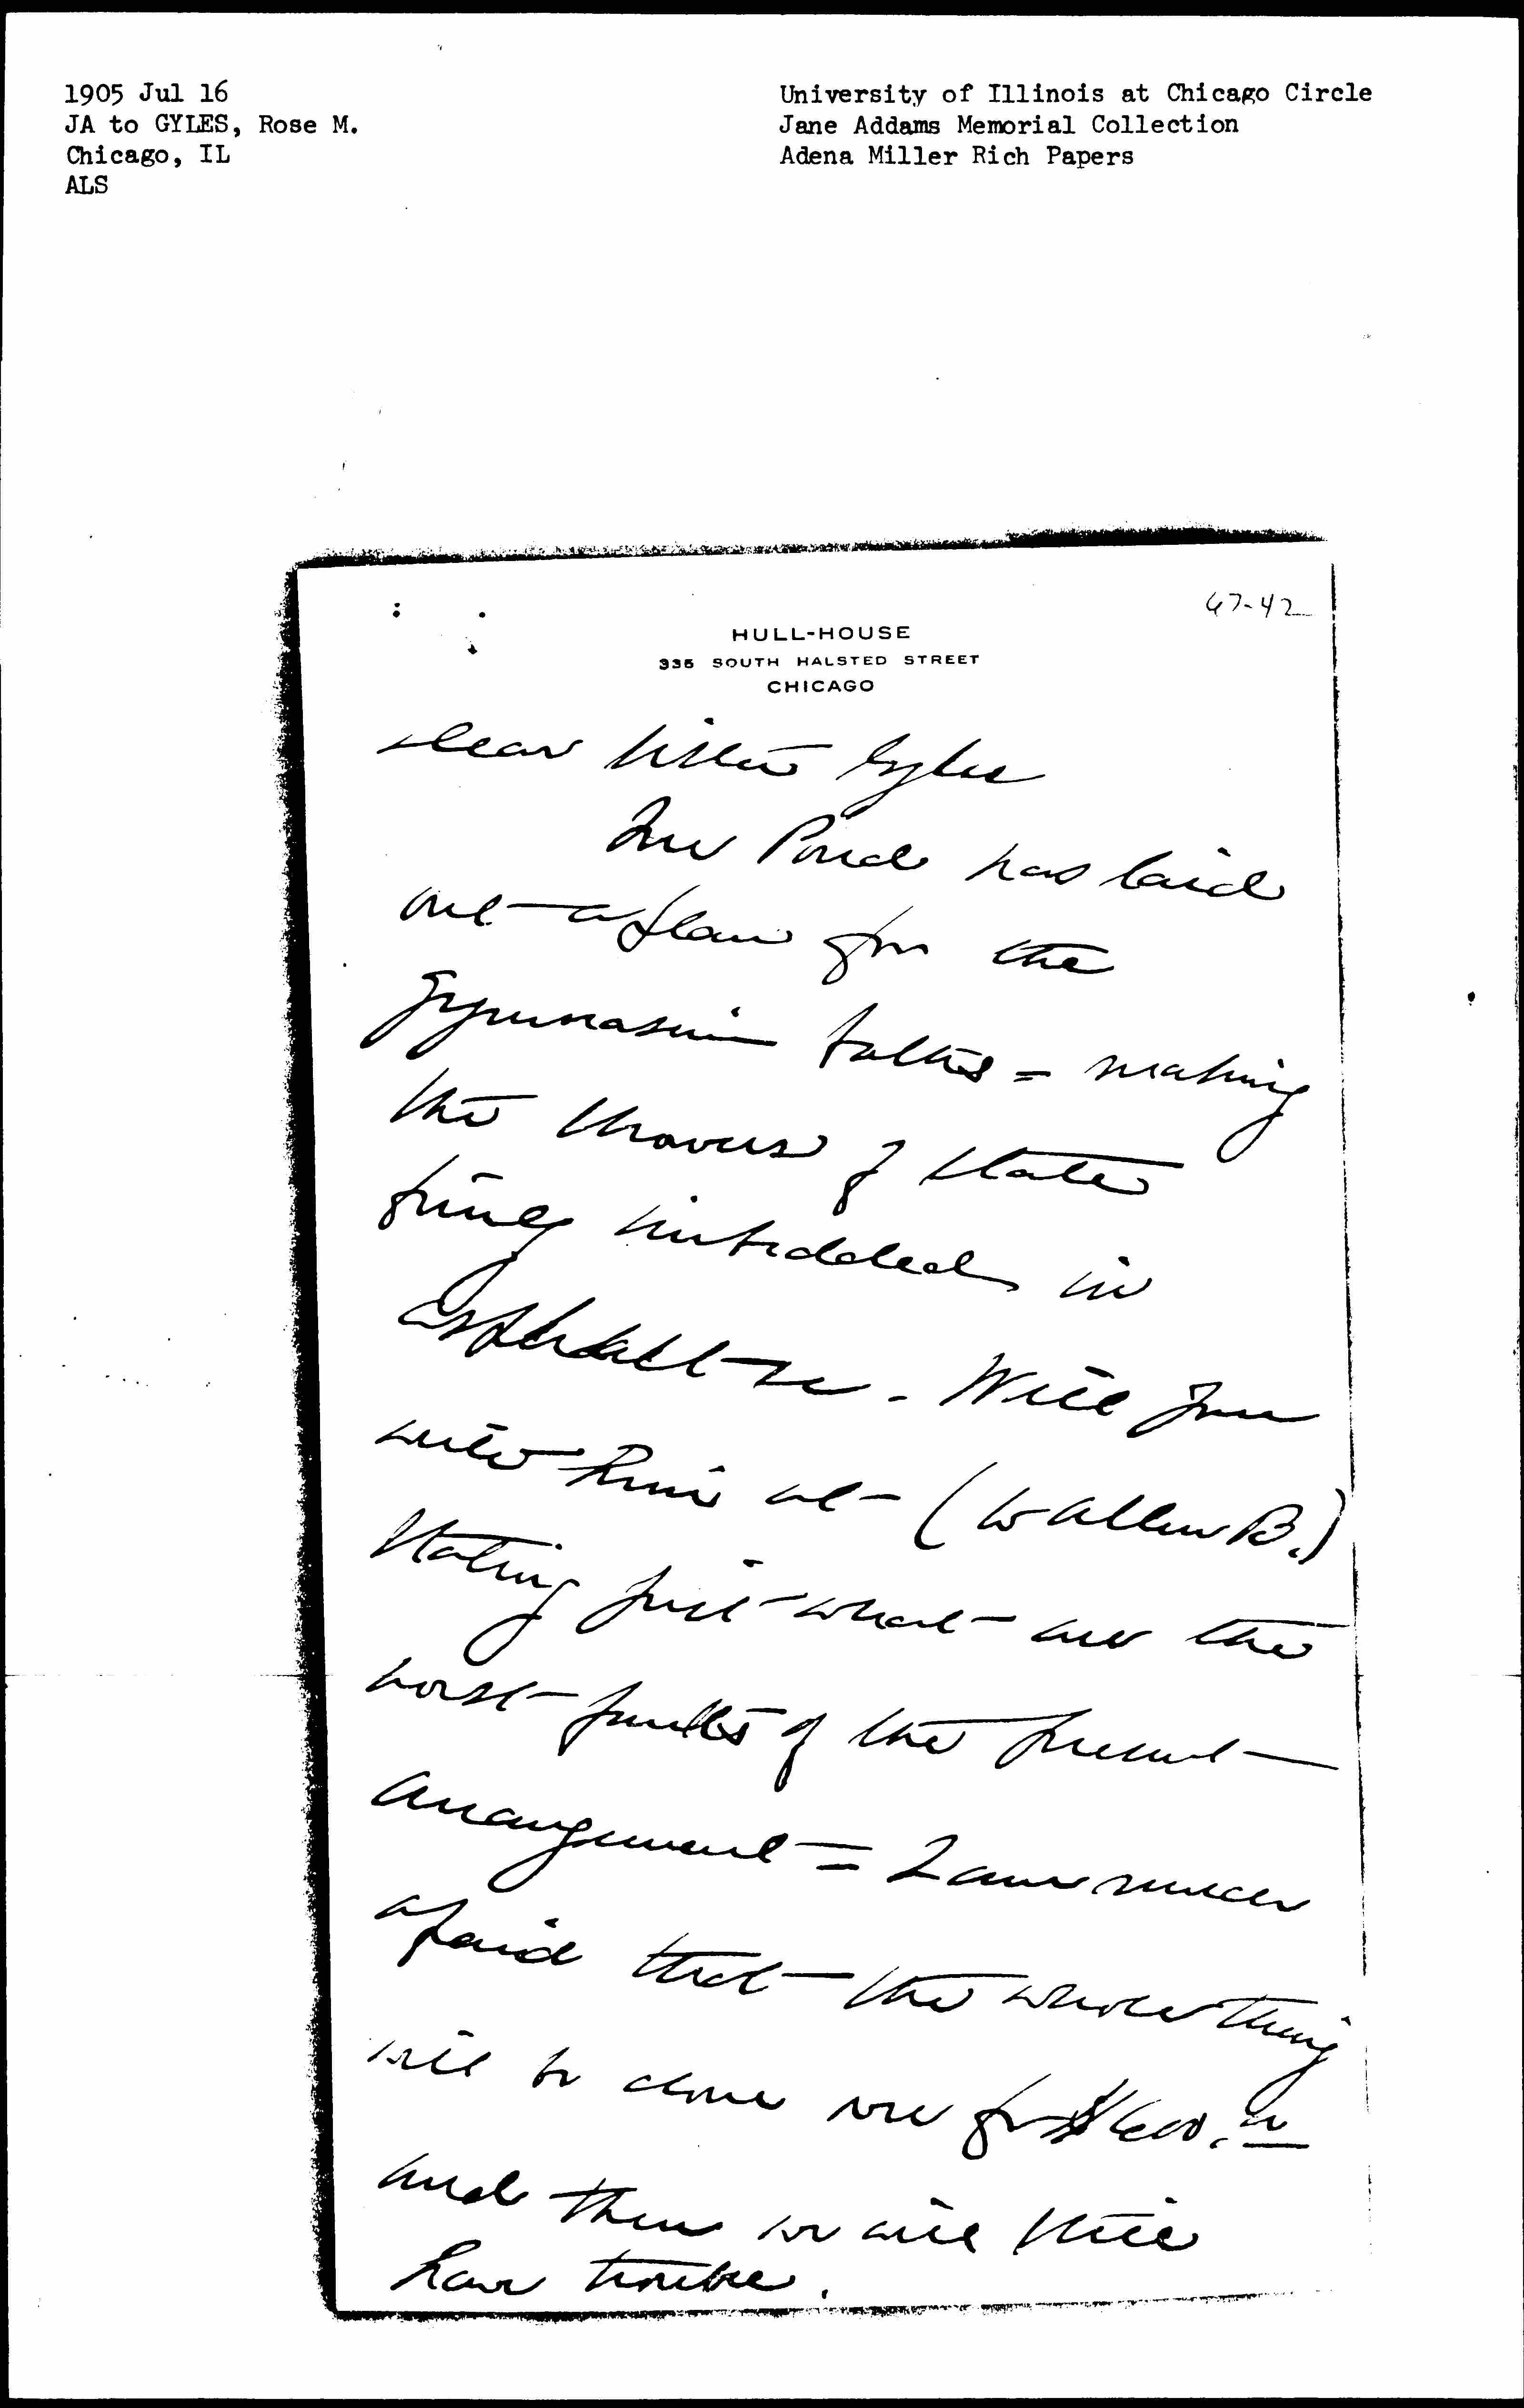 1905 Jul 16
JA to GYLES, Rose M.
Chicago, IL
ALS
University of Illinois at Chicago Circle
Jane Addams Memorial Collection
Adena Miller Rich Papers
67-42
HULL-HOUSE
335 SOUTH HALSTED STREET
CHICAGO
Dear Sister Gyles
Mr Pond has laid
out a plan for the
gymnasium baths = making
the showers of slate
finely imbedded in
asphalt - Will you
write him at - (to Allen B.)
stating just what are the
worst faults of the present
arrangement = I am much
afraid that the whole thing
will be done over for $600.
and then we will still
have trouble.